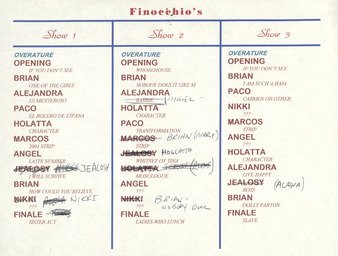 Finocchio's
Show 1
OVERATURE
OPENING
IF YOU DON'T SEE
BRIAN
ONE OF THE GIRLS
ALEJANDRA
ES MENTEROSO
PACO
EL BOLERO DE ESPANA
HOLATTA
CHARACTER
MARCOS
2001 STRIP
ANGEL
LATIN NUMBER
JEALOSY JEALOSY
I WILL SURVIVE
BRIAN
HOW COULD YOU BELIEVE
NIKKI NICKI
???
FINALE
SISTER ACT
Show 2
OVERATURE
OPENING
WHOREHOUSE
BRIAN
NOBODY DOES IT LIKE M
ALEJANDRA
HOLATTA
CHARACTER
PACO
TRANSFORMATION
MARCOS BRIAN
STRIP
JEALOSY HOLLATTA
WHITNEY OT TINA
HOLATTA
MONOLOGUE
ANGEL
???
NIKKI BRIAN-
???
FINALE
LADIES WHO LUNCH
Show 3
OVERATURE
OPENING
IF YOU DON'T SEE
BRIAN
I AM SUCH A HAM
PACO
CARMEN OR OTHER
NIKKI
???
MARCOS
STRIP
ANGEL
???
HOLATTA
CHARACTER
ALEJANDRA
LIVE HAPPY
JEALOSY
ROSS
BRIAN
DOLLY PARTON
FINALE
SLAVE